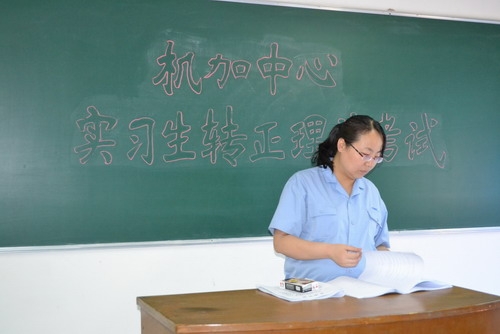 机加中心
实习生转正理考试